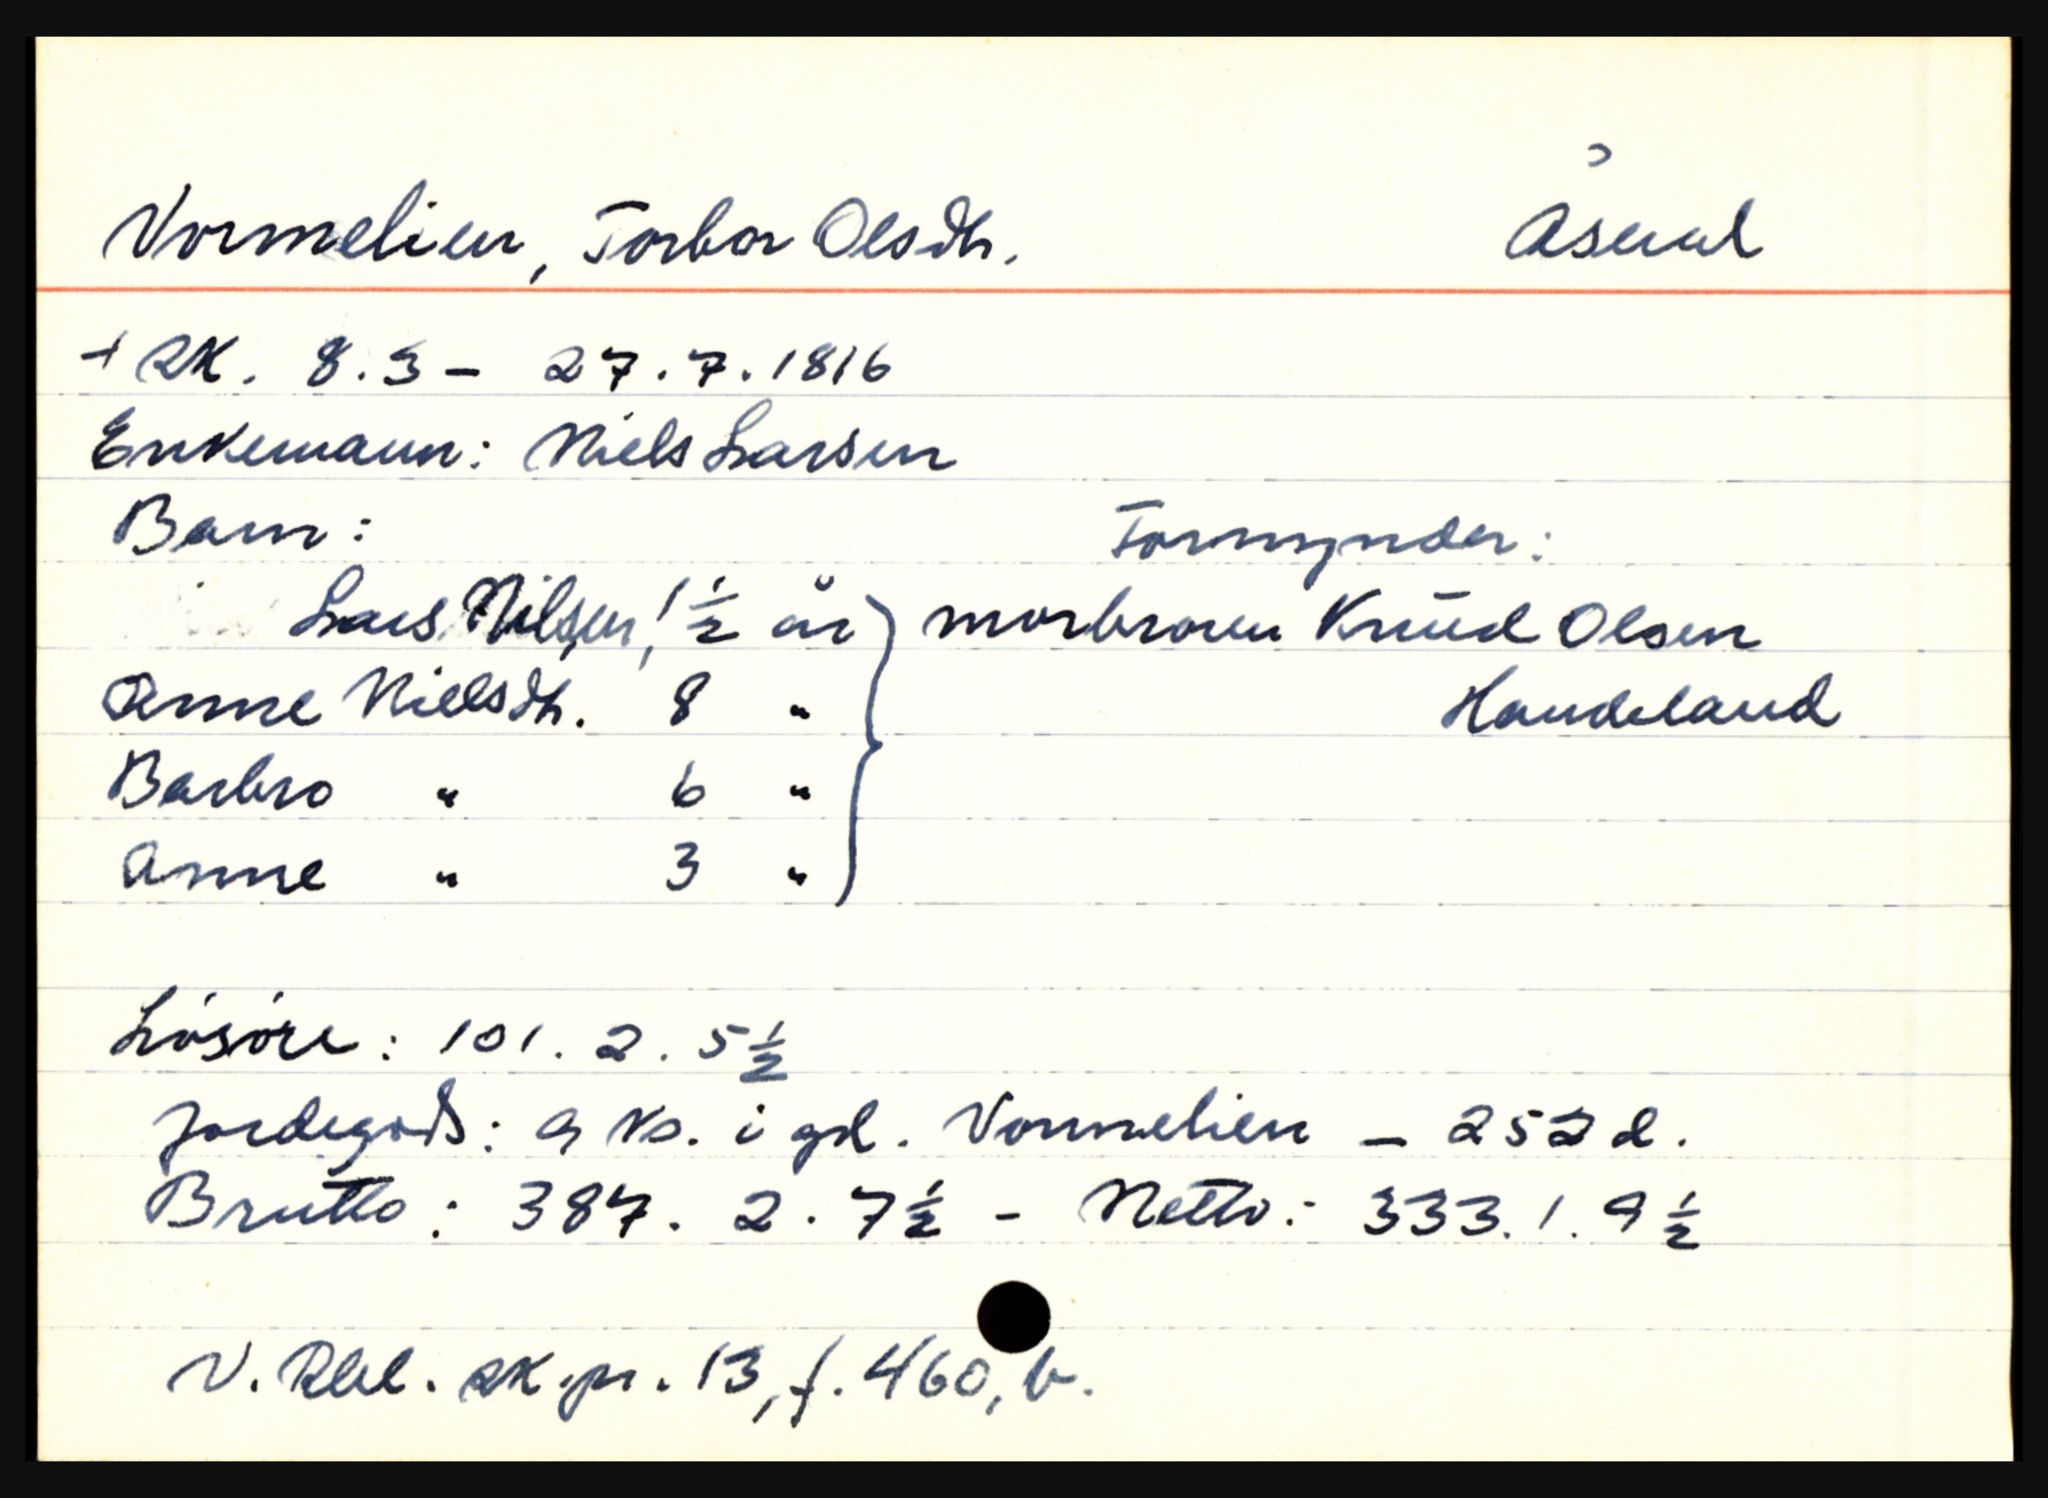 Vormelien, Torbor Olsdtr. Åseral
+ sk. 8.3 - 27.7.1816
Enkemann: Niels Larsen
Barn: Formynder:
Lars Nilsen, 1 1/2 år } morbroren Knud Olsen
Anne Nielsdtr. 8 " Haudeland
Barbro " 6 "
Anne " 3 "
Lösöre: 101. 2. 5 1/2
Jordegods: 9 ks. i gd. Vormelien - 252 d.
Brutto: 387. 2. 7 1/2 - Netto: 333. 1. 9 1/2
V. Rbl. sk.pr. 13, f. 460, b.